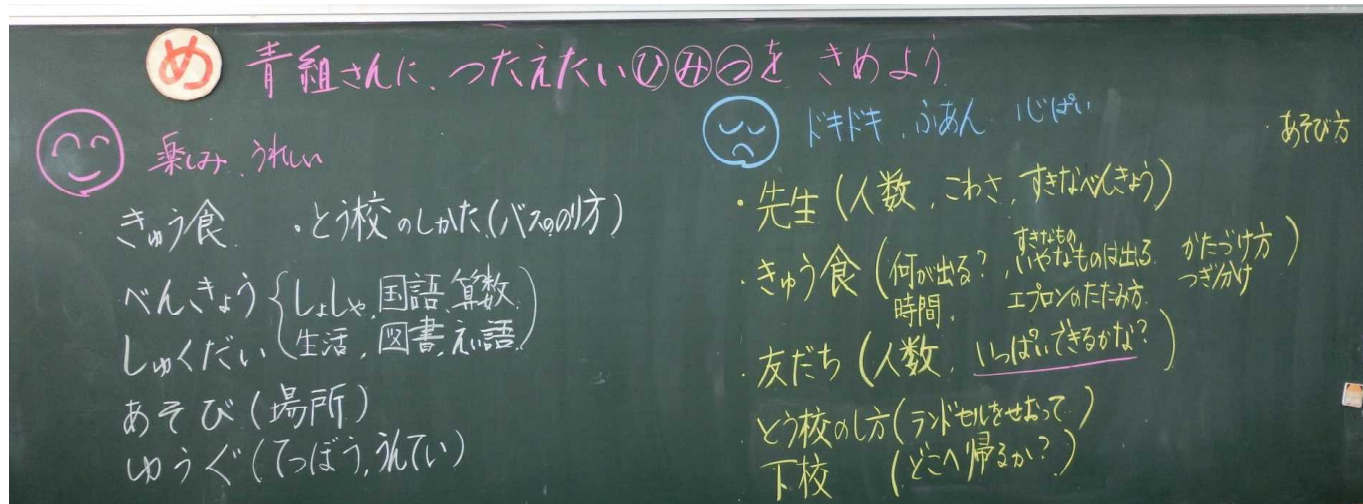 め 青組さんに、つたえたいひみつを きめよう
楽しみ、うれしい
きゅう食 ・とう校のしかた(バスののり方)
べんきょう しょしゃ、国語、算数
しゅくだい 生活、図書、えい語
あそび(場所)
ゆうぐ(てつぼう、うんてい)
ドキドキ、ふあん 心ぱい
・あそび方
・先生(人数、こわさ、すきなべんきょう)
・きゅう食(何が出る? 時間、
すきなもの
いやなものは出る
エプロンのたたみ方
かたづけ方
つぎ分け)
・友だち(人数、いっぱいできるかな?)
とう校のし方(ランドセルをせおって)
下校 (どこへ帰るか?)